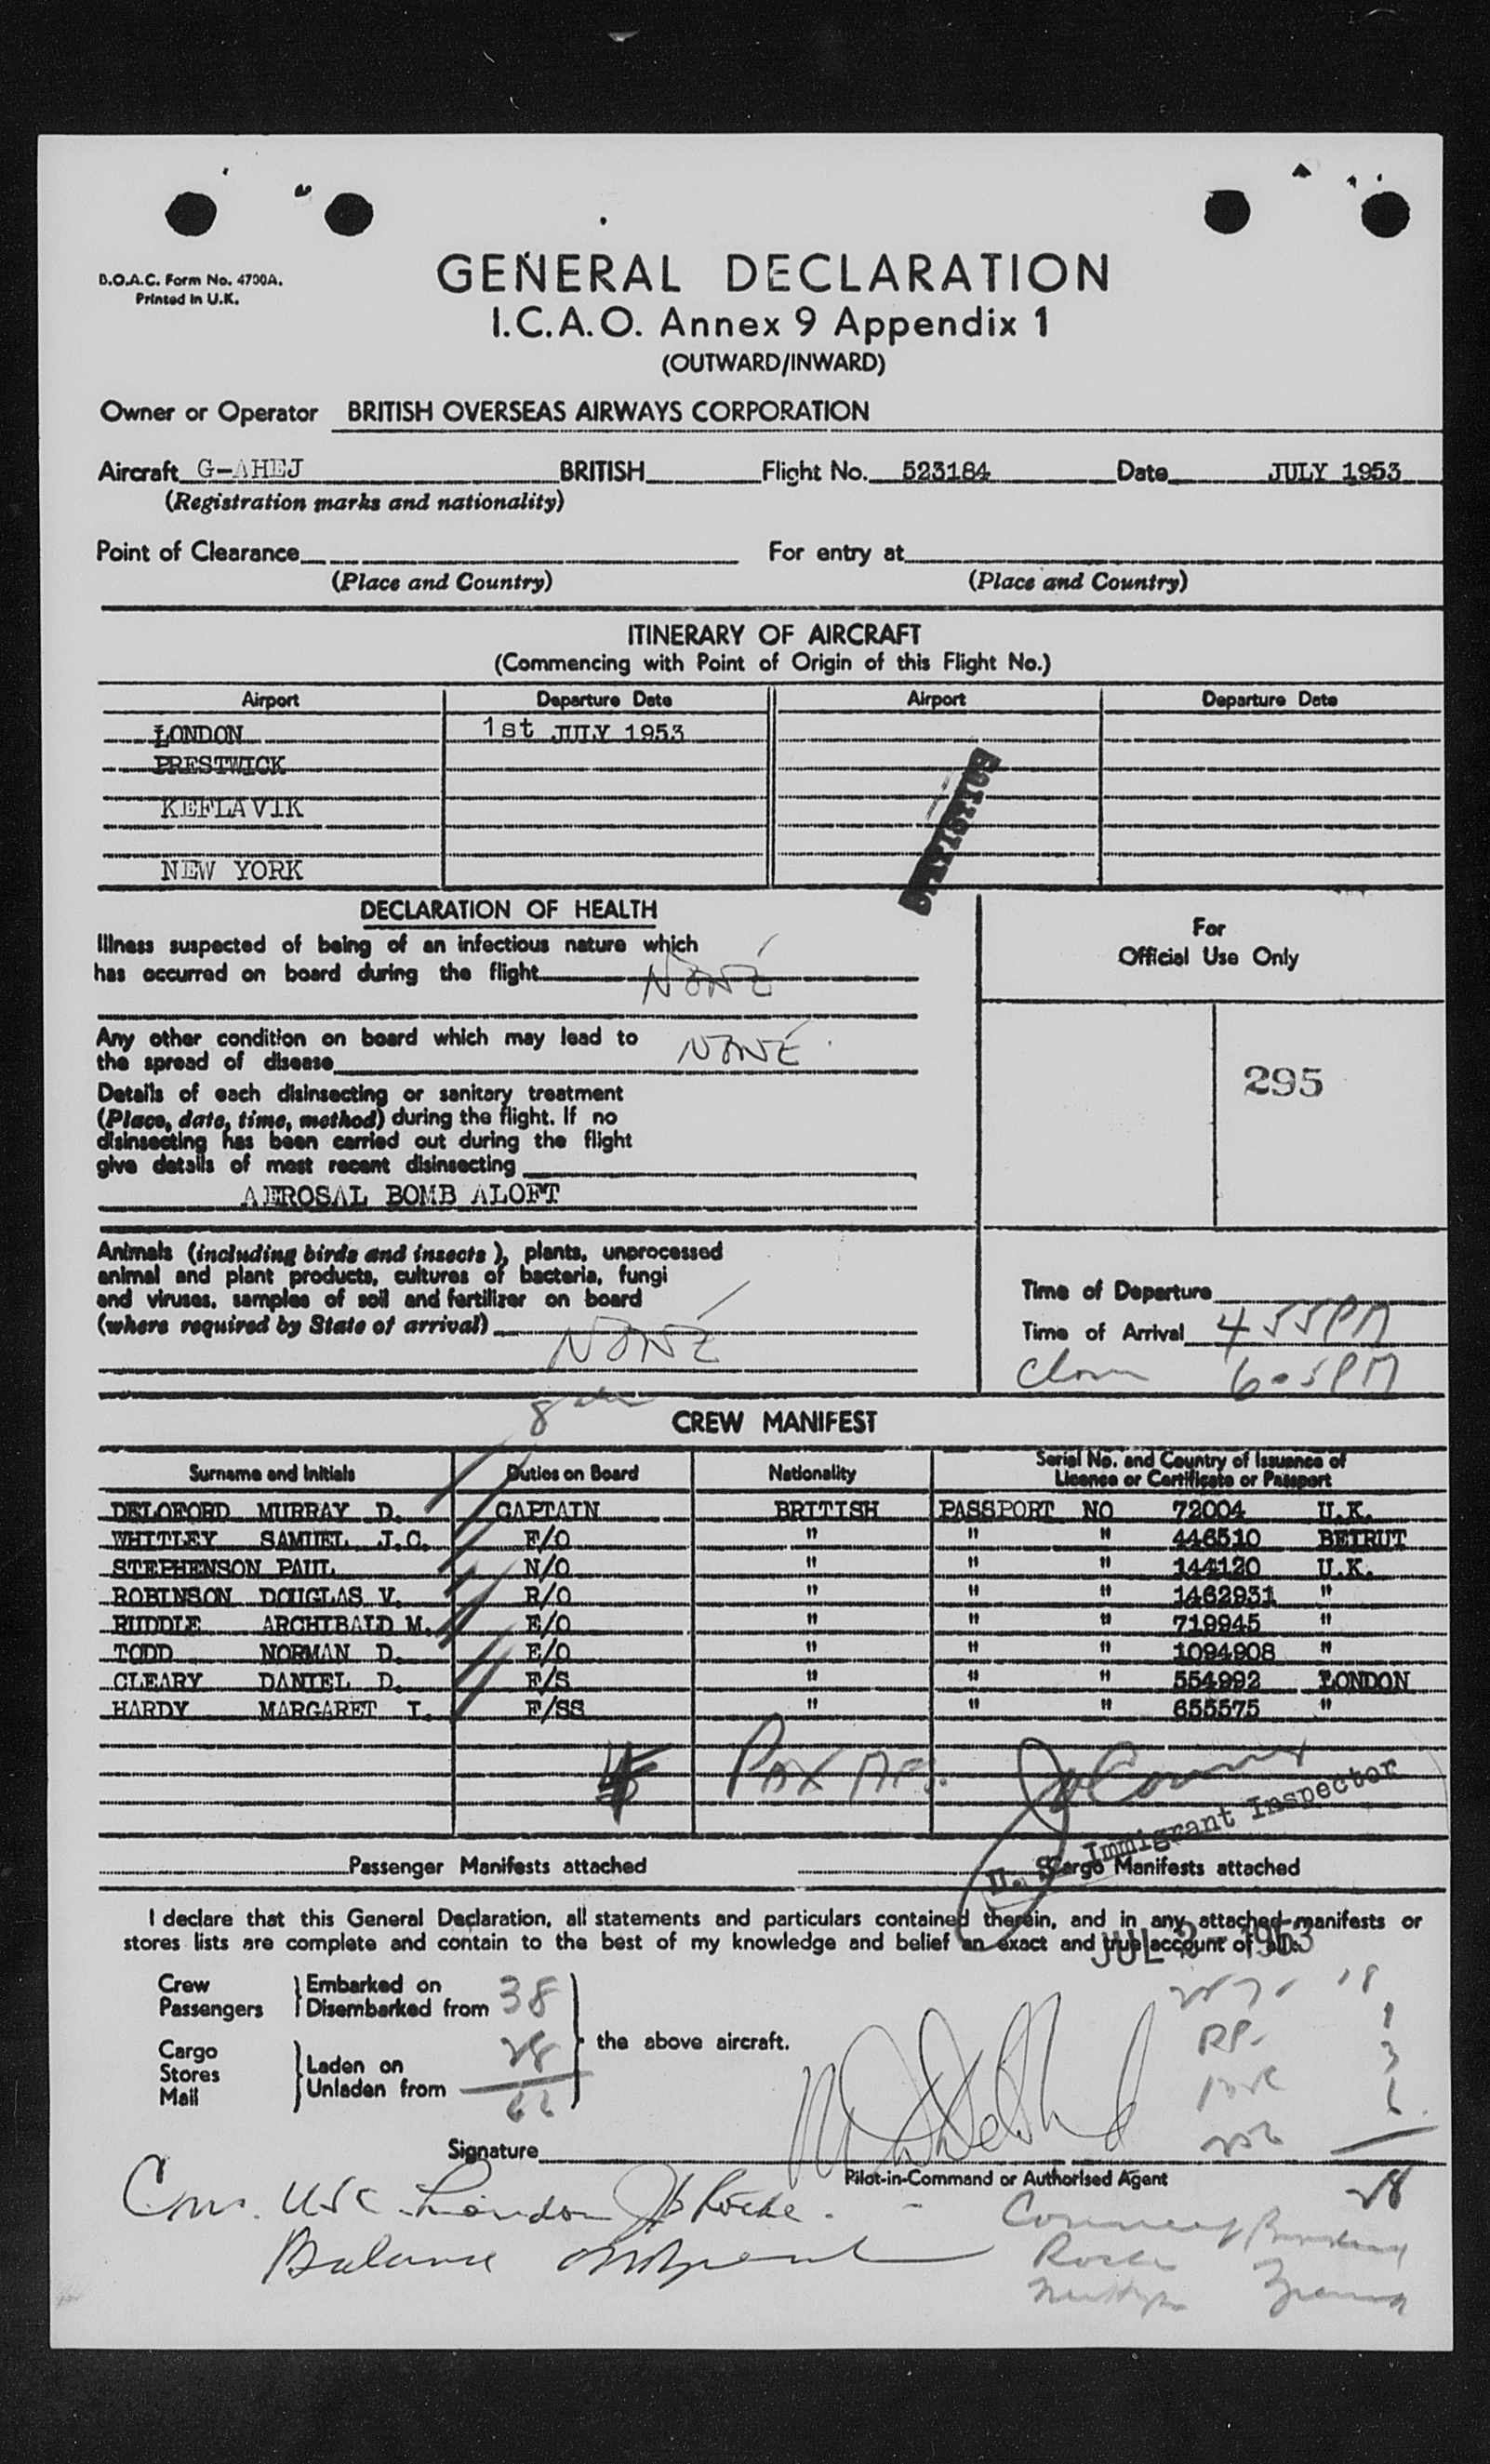 B.O.A.C. Form No. 4700A.
Printed in U.K.
GENERAL DECLARATION
I.C.A.O. Annex 9 Appendix 1
(OUTWARD/INWARD)
Owner or Operator BRITISH OVERSEAS AIRWAYS CORPORATION
Aircraft G-AHEJ BRITISH Flight No. 523184 Date JULY 1953
(Registration marks and nationality)
Point of Clearance For entry at
(Place and Country) (Place and Country)
ITINERARY OF AIRCRAFT
(Commencing with Point of Origin of this Flight No.)
Airport Departure Date Airport Departure Date
LONDON 1st JULY 1953
PRESTWICK
KEFLAVIK
NEW YORK
DECLARATION OF HEALTH
For
Official Use Only
Illness suspected of being of an infectious nature which
has occurred on board during the flight NONE
Any other condition on board which may lead to
the spread of disease NONE
295
Details of each disinsecting or sanitary treatment
(Place, date, time, method) during the flight. If no
disinsecting has been carried out during the flight
give details of most recent disinsecting
AEROSAL BOMB ALOFT
Animals (including birds and insects), plants, unprocessed
animal and plant products, cultures of bacteria, fungi
and viruses, samples of soil and fertilizer on board
(where required by State of arrival) NONE
Time of Departure
Time of Arrival 455PM
605PM
CREW MANIFEST
Surname and Initials Duties on Board Nationality Serial No. and Country of Issuance of
Licence or Certificate or Passport
DELOFORD MURRAY D. CAPTAIN BRITISH PASSPORT NO 72004 U.K.
WHITLEY SAMUEL J.C. F/O " " " 446510 BEIRUT
STEPHENSON PAUL N/O " " " 144120 U.K.
ROBINSON DOUGLAS V. R/O " " " 1462931 "
RUDDLE ARCHIBALD M. E/O " " " 719945 "
TODD NORMAN D. E/O " " " 1094908 "
CLEARY DANIEL D. F/S " " " 554992 LONDON
HARDY MARGARET I. F/SS " " " 655575 "
PAX
U. S. Immigrant Inspector
Passenger Manifests attached Cargo Manifests attached
I declare that this General Declaration, all statements and particulars contained therein, and in any attached manifests or
stores lists are complete and contain to the best of my knowledge and belief an exact and true account of all.
JUL 2 - 1953
Crew
Passengers
Embarked on
Disembarked from 38
Cargo
Stores
Mail
Laden on
Unladen from
28
66
the above aircraft.
18
1
3
6
28
Signature
Pilot-in-Command or Authorised Agent
London
Balance